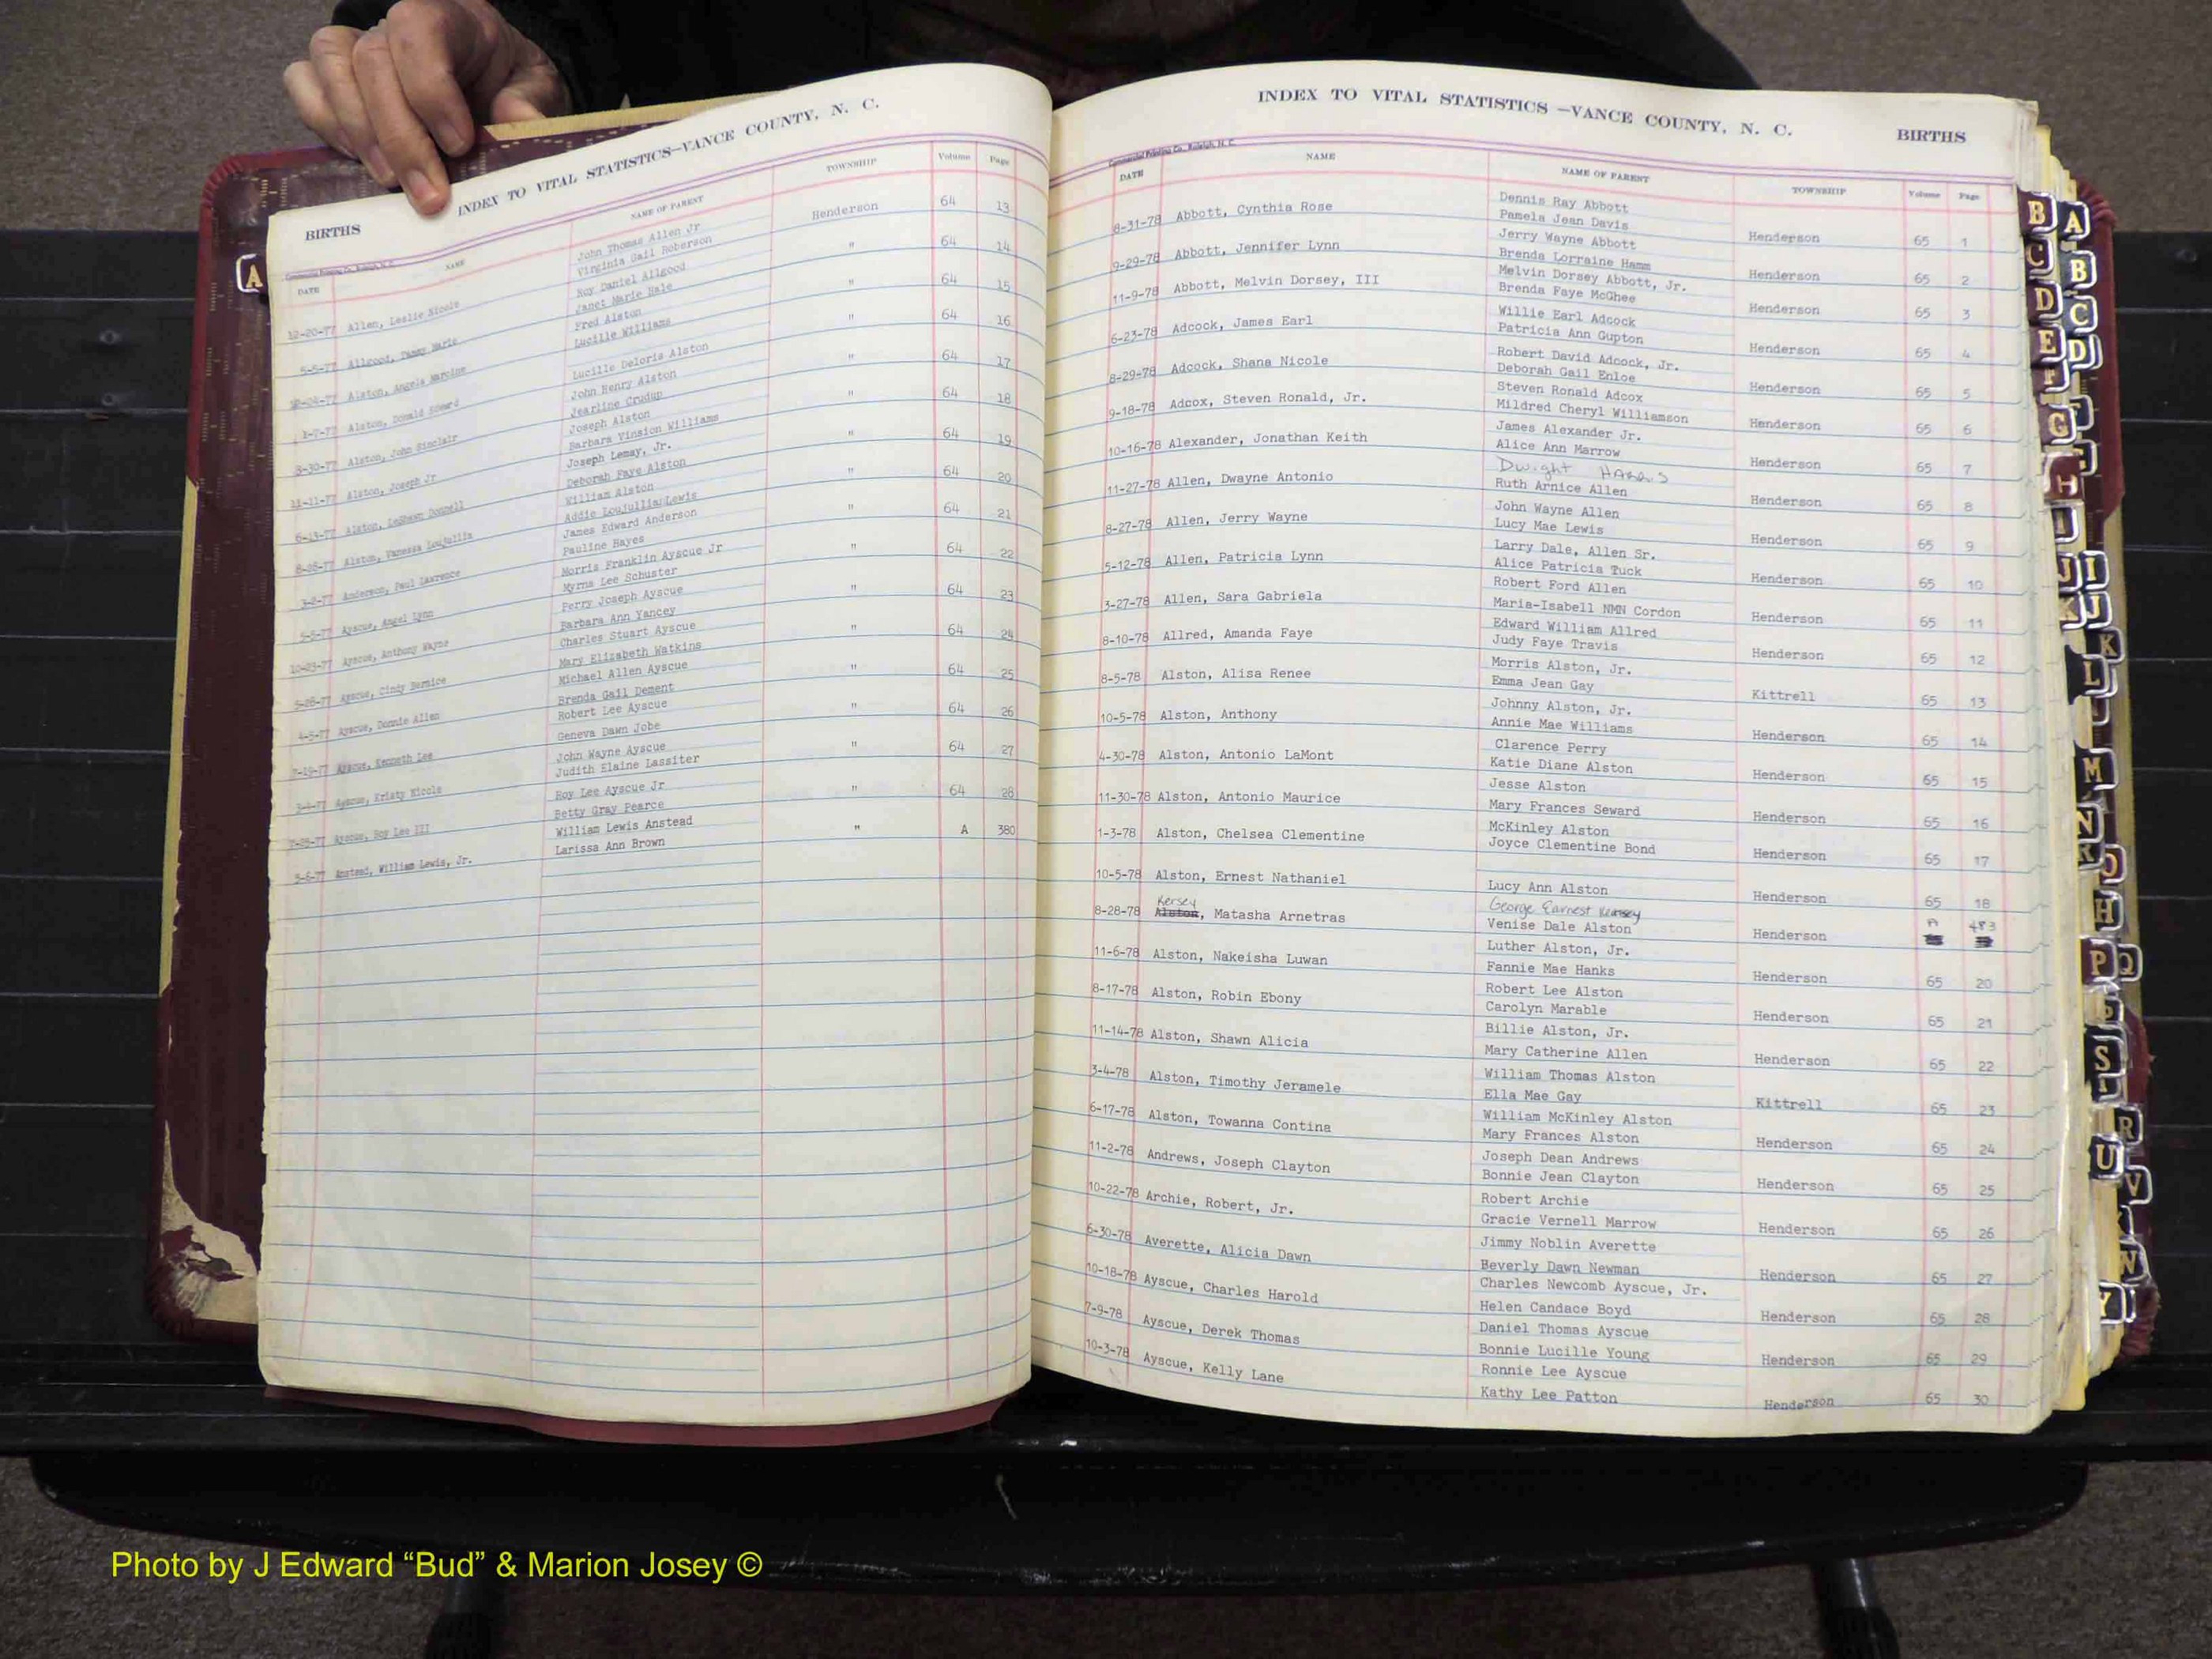 INDEX TO VITAL STATISTICS—VANCE COUNTY, N. C.
BIRTHS
Commercial Printing Co., Raleigh, N. C.
DATE NAME NAME OF PARENT TOWNSHIP Volume Page
John Thomas Allen Jr
12-20-77 Allen, Leslie Nicole Virginia Gail Roberson Henderson 64 13
Roy Daniel Allgood
5-5-77 Allgood, Tammy Marie Janet Marie Hale " 64 14
Fred Alston
Alston, Angela Marcine Lucille Williams " 64 15
1-7-77 Alston, Donald Edward Lucille Deloris Alston " 64 16
John Henry Alston
8-30-77 Alston, John Sinclair Jearline Crudup " 64 17
Joseph Alston
11-11-77 Alston, Joseph Jr Barbara Vinsion Williams " 64 18
Joseph Lemay, Jr.
6-13-77 Alston, LeShawn Donnell Deborah Faye Alston " 64 19
William Alston
8-28-77 Alston, Vanessa Loujullia Addie Loujullia Lewis " 64 20
James Edward Anderson
3-2-77 Anderson, Paul Lawrence Pauline Hayes " 64 21
Morris Franklin Ayscue Jr
5-5-77 Ayscue, Angel Lynn Myrna Lee Schuster " 64 22
Perry Joseph Ayscue
10-23-77 Ayscue, Anthony Wayne Barbara Ann Yancey " 64 23
Charles Stuart Ayscue
5-28-77 Ayscue, Cindy Bernice Mary Elizabeth Watkins " 64 24
Michael Allen Ayscue
4-5-77 Ayscue, Donnie Allen Brenda Gail Dement " 64 25
Robert Lee Ayscue
7-19-77 Ayscue, Kenneth Lee Geneva Dawn Jobe " 64 26
John Wayne Ayscue
3-4-77 Ayscue, Kristy Nicole Judith Elaine Lassiter " 64 27
Roy Lee Ayscue Jr
7-28-77 Ayscue, Roy Lee III Betty Gray Pearce " 64 28
William Lewis Anstead
5-6-77 Anstead, William Lewis, Jr. Larissa Ann Brown " A 380
INDEX TO VITAL STATISTICS —VANCE COUNTY, N. C. BIRTHS
Commercial Printing Co., Raleigh, N. C.
DATE NAME NAME OF PARENT TOWNSHIP Volume Page
Dennis Ray Abbott
8-31-78 Abbott, Cynthia Rose Pamela Jean Davis Henderson 65 1
Jerry Wayne Abbott
9-29-78 Abbott, Jennifer Lynn Brenda Lorraine Hamm Henderson 65 2
Melvin Dorsey Abbott, Jr.
11-9-78 Abbott, Melvin Dorsey, III Brenda Faye McGhee Henderson 65 3
Willie Earl Adcock
6-23-78 Adcock, James Earl Patricia Ann Gupton Henderson 65 4
Robert David Adcock, Jr.
8-29-78 Adcock, Shana Nicole Deborah Gail Enloe Henderson 65 5
Steven Ronald Adcox
9-18-78 Adcox, Steven Ronald, Jr. Mildred Cheryl Williamson Henderson 65 6
James Alexander Jr.
10-16-78 Alexander, Jonathan Keith Alice Ann Marrow Henderson 65 7
Dwight HARRIS
11-27-78 Allen, Dwayne Antonio Ruth Arnice Allen Henderson 65 8
John Wayne Allen
8-27-78 Allen, Jerry Wayne Lucy Mae Lewis Henderson 65 9
Larry Dale, Allen Sr.
5-12-78 Allen, Patricia Lynn Alice Patricia Tuck Henderson 65 10
Robert Ford Allen
3-27-78 Allen, Sara Gabriela Maria-Isabell NMN Cordon Henderson 65 11
Edward William Allred
8-10-78 Allred, Amanda Faye Judy Faye Travis Henderson 65 12
Morris Alston, Jr.
8-5-78 Alston, Alisa Renee Emma Jean Gay Kittrell 65 13
Johnny Alston, Jr.
10-5-78 Alston, Anthony Annie Mae Williams Henderson 65 14
Clarence Perry
4-30-78 Alston, Antonio LaMont Katie Diane Alston Henderson 65 15
Jesse Alston
11-30-78 Alston, Antonio Maurice Mary Frances Seward Henderson 65 16
McKinley Alston
1-3-78 Alston, Chelsea Clementine Joyce Clementine Bond Henderson 65 17
10-5-78 Alston, Ernest Nathaniel Lucy Ann Alston Henderson 65 18
Kersey George Earnest Kersey A 483
8-28-78 Alston, Matasha Arnetras Venise Dale Alston Henderson
Luther Alston, Jr.
11-6-78 Alston, Nakeisha Luwan Fannie Mae Hanks Henderson 65 20
Robert Lee Alston
8-17-78 Alston, Robin Ebony Carolyn Marable Henderson 65 21
Billie Alston, Jr.
11-14-78 Alston, Shawn Alicia Mary Catherine Allen Henderson 65 22
William Thomas Alston
3-4-78 Alston, Timothy Jeramele Ella Mae Gay Kittrell 65 23
William McKinley Alston
6-17-78 Alston, Towanna Contina Mary Frances Alston Henderson 65 24
Joseph Dean Andrews
11-2-78 Andrews, Joseph Clayton Bonnie Jean Clayton Henderson 65 25
Robert Archie
10-22-78 Archie, Robert, Jr. Gracie Vernell Marrow Henderson 65 26
Jimmy Noblin Averette
6-30-78 Averette, Alicia Dawn Beverly Dawn Newman Henderson 65 27
Charles Newcomb Ayscue, Jr.
10-18-78 Ayscue, Charles Harold Helen Candace Boyd Henderson 65 28
Daniel Thomas Ayscue
7-9-78 Ayscue, Derek Thomas Bonnie Lucille Young Henderson 65 29
Ronnie Lee Ayscue
10-3-78 Ayscue, Kelly Lane Kathy Lee Patton Henderson 65 30
A
B A
C B
D C
E D
F
G
H
I
J I
J
K
L
M
N
O
H
P Q
S
R
U
V
W
Y
Photo by J Edward “Bud” & Marion Josey ©